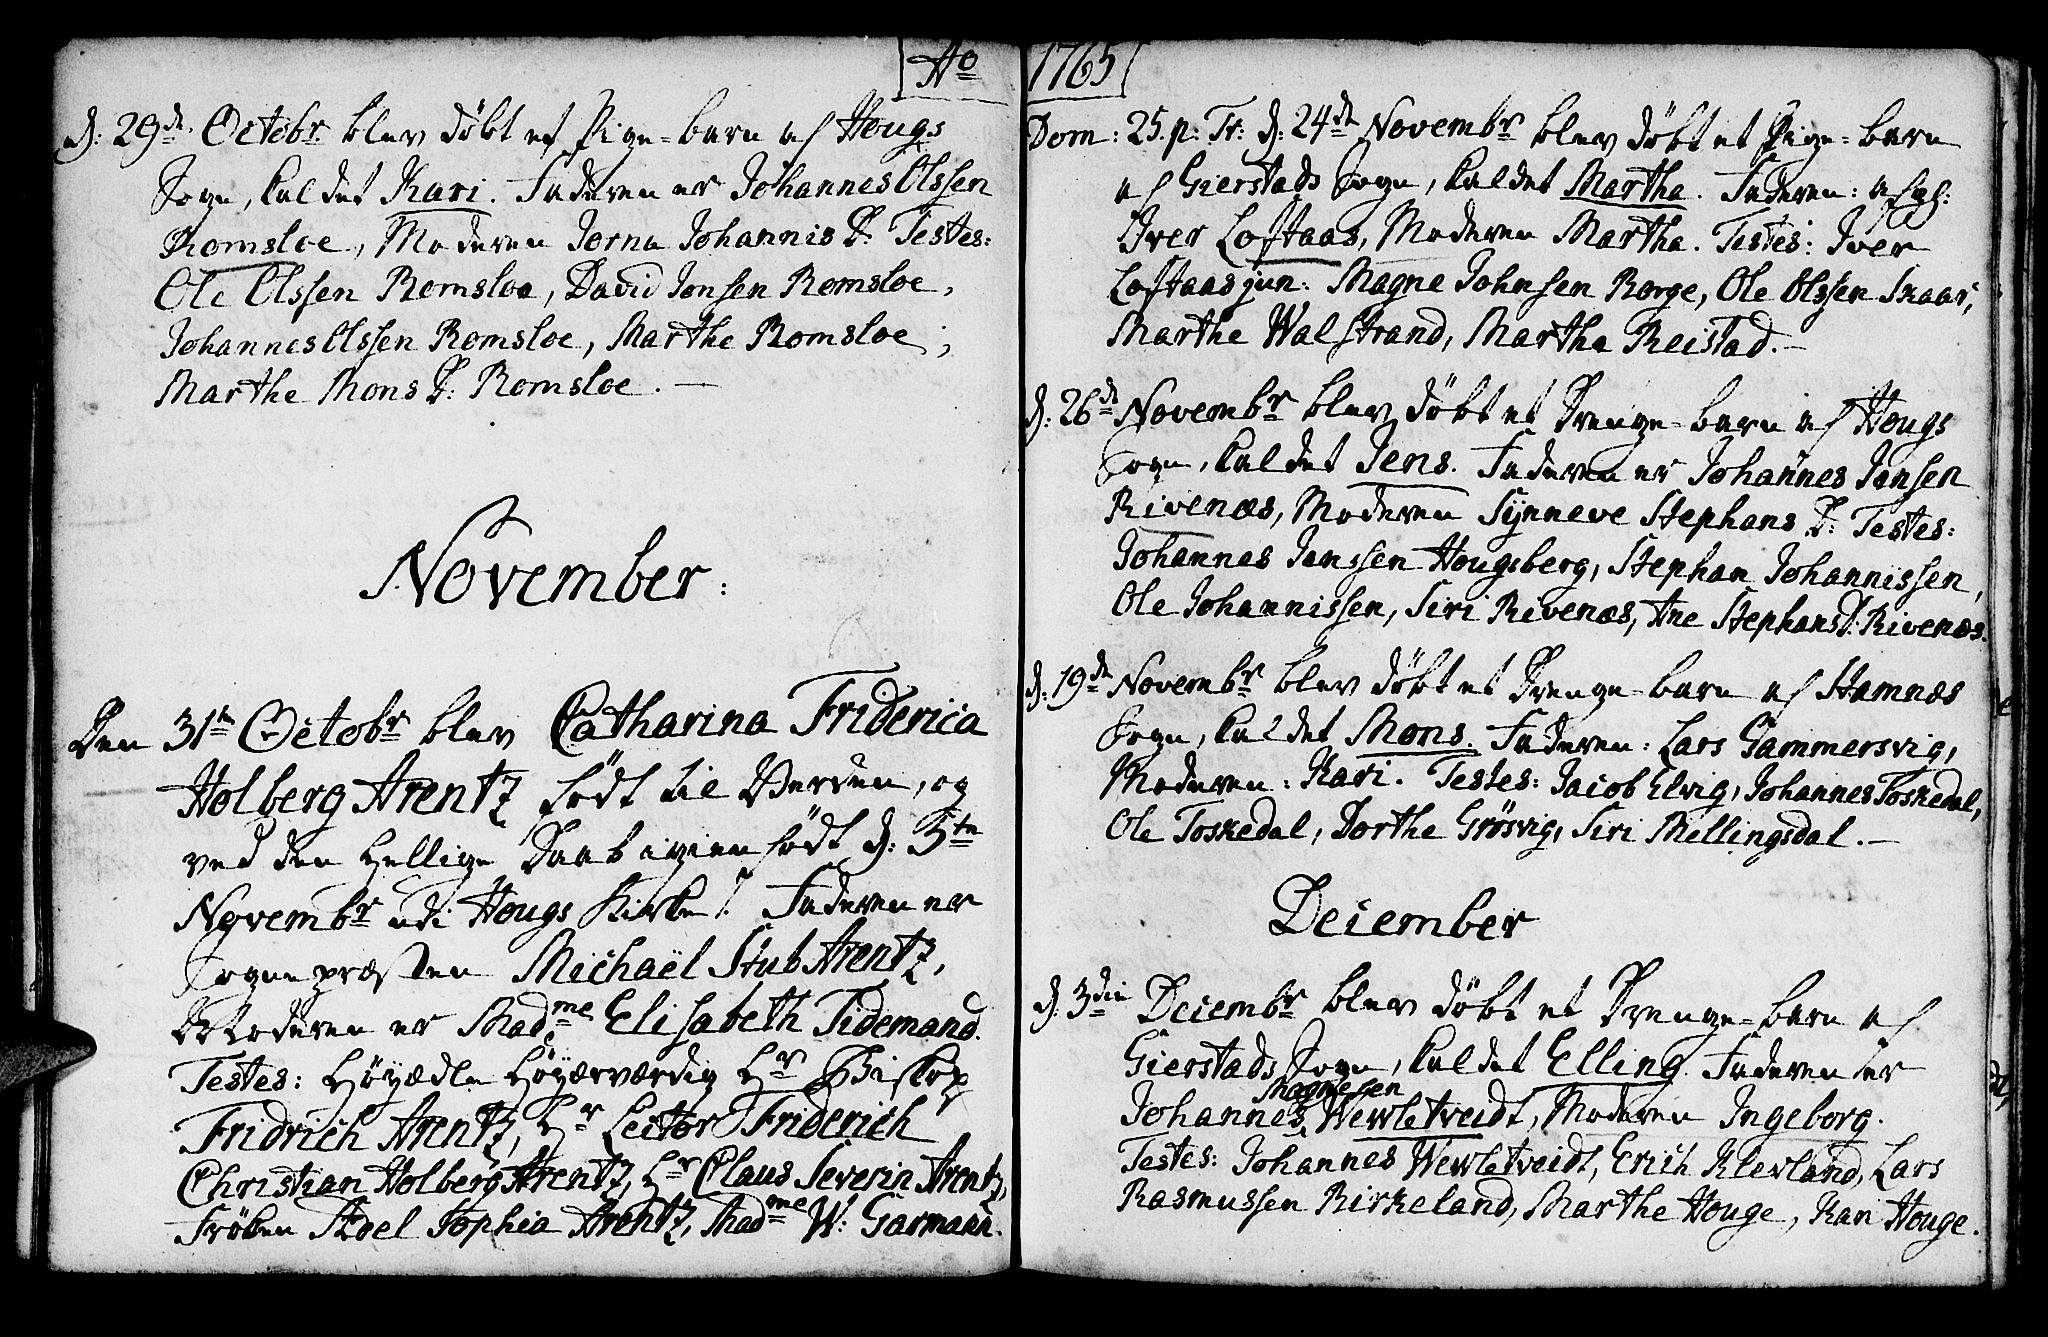 Ao
d: 29de Octobr blev døbt et Pige-barn af Hougs
Sogn, kaldet Kari. Faderen er Johannes Olssen
Romsloe, Moderen Jorna Johannis D. Testes:
Ole Olssen Romsloe, David Jonsen Romsloe,
Johannes Olssen Romsloe, Marthe Romsloe,
Marthe Mons D: Romsloe. —
November:
Den 31te Octobr blev Catharina Friderica
Holberg Arentz født til Verden, og
ved den hellige Daab igien født d: 5te
Novembr udi Hougs Kirke. Faderen er
Sognepræsten Michaël Stub Arentz,
Moderen er Madme Elisabeth Tidemand.
Testes: Høyædle Høyærværdig Hr Biskop
Fridrich Arentz, Hr Lector Friderich
Christian Holberg Arentz, Hr Claus Severin Arentz,
Frøken Abel Sophia Arentz, Madme W: Garmann.
1765
Dom: 25. p: Tr: d: 24de Novembr blev døbt et Pige-barn
af Gierstads Sogn, kaldet Martha. Faderen: afgl:
Iver Loftaas, Moderen Martha. Testes: Iver
Loftaas jun: Magne Johnsen Rorge, Ole Olssen Skaar,
Marthe Walstrand, Martha Reistad. —
d: 26de Novembr blev døbt et Drenge-barn af Hougs
Sogn, kaldet Jens. Faderen er Johannes Jensen
Rivenæs, Moderen Synneve Stephans D: Testes:
Johannes Janssen Hougsberg, Stephan Johannissen,
Ole Johannissen, Siri Rivenæs, Ane Stephans D: Rivenæs.
d: 19de Novembr blev døbt et Drenge-barn af Hamnæs
Sogn, kaldet Mons. Faderen: Lars Gammersvig,
Moderen: Kari. Testes: Jacob Elvig, Johannes Toskedal,
Ole Toskedal, Dorthe Grøsvig, Siri Mellingsdal. —
December
d. 3die Decembr blev døbt et Drenge-barn af
Gierstads Sogn, kaldet Elling. Faderen er
Magnesen
Johannes Wewletveidt, Moderen Ingeborg.
Testes: Johannes Wewletveidt, Erich Klevland, Lars
Rasmussen Birkeland, Marthe Houge, Kari Houge.